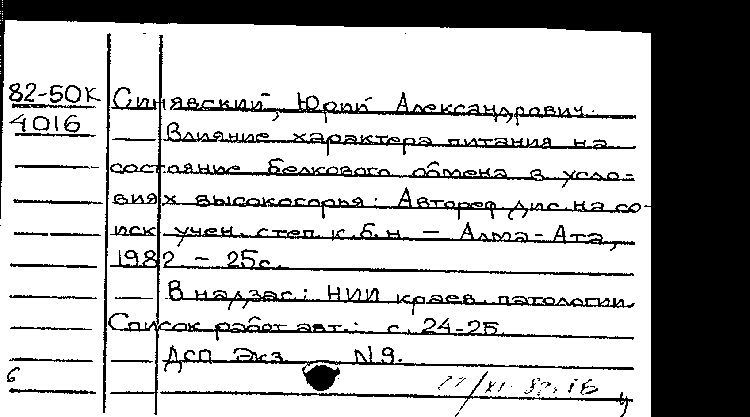 82-50К Синявский, Юрий Александрович.
4016 Влияние характера питания на
состояние белкового обмена в усло-
виях высокогорья: Автореф. дис. на со-
иск. учен. степ. к.б.н. – Алма-Ата,
1982 – 25с.
В надзаг.: НИИ краев. патологии.
Список работ авт.: с. 24-25.
ДСП Экз. N9.
6